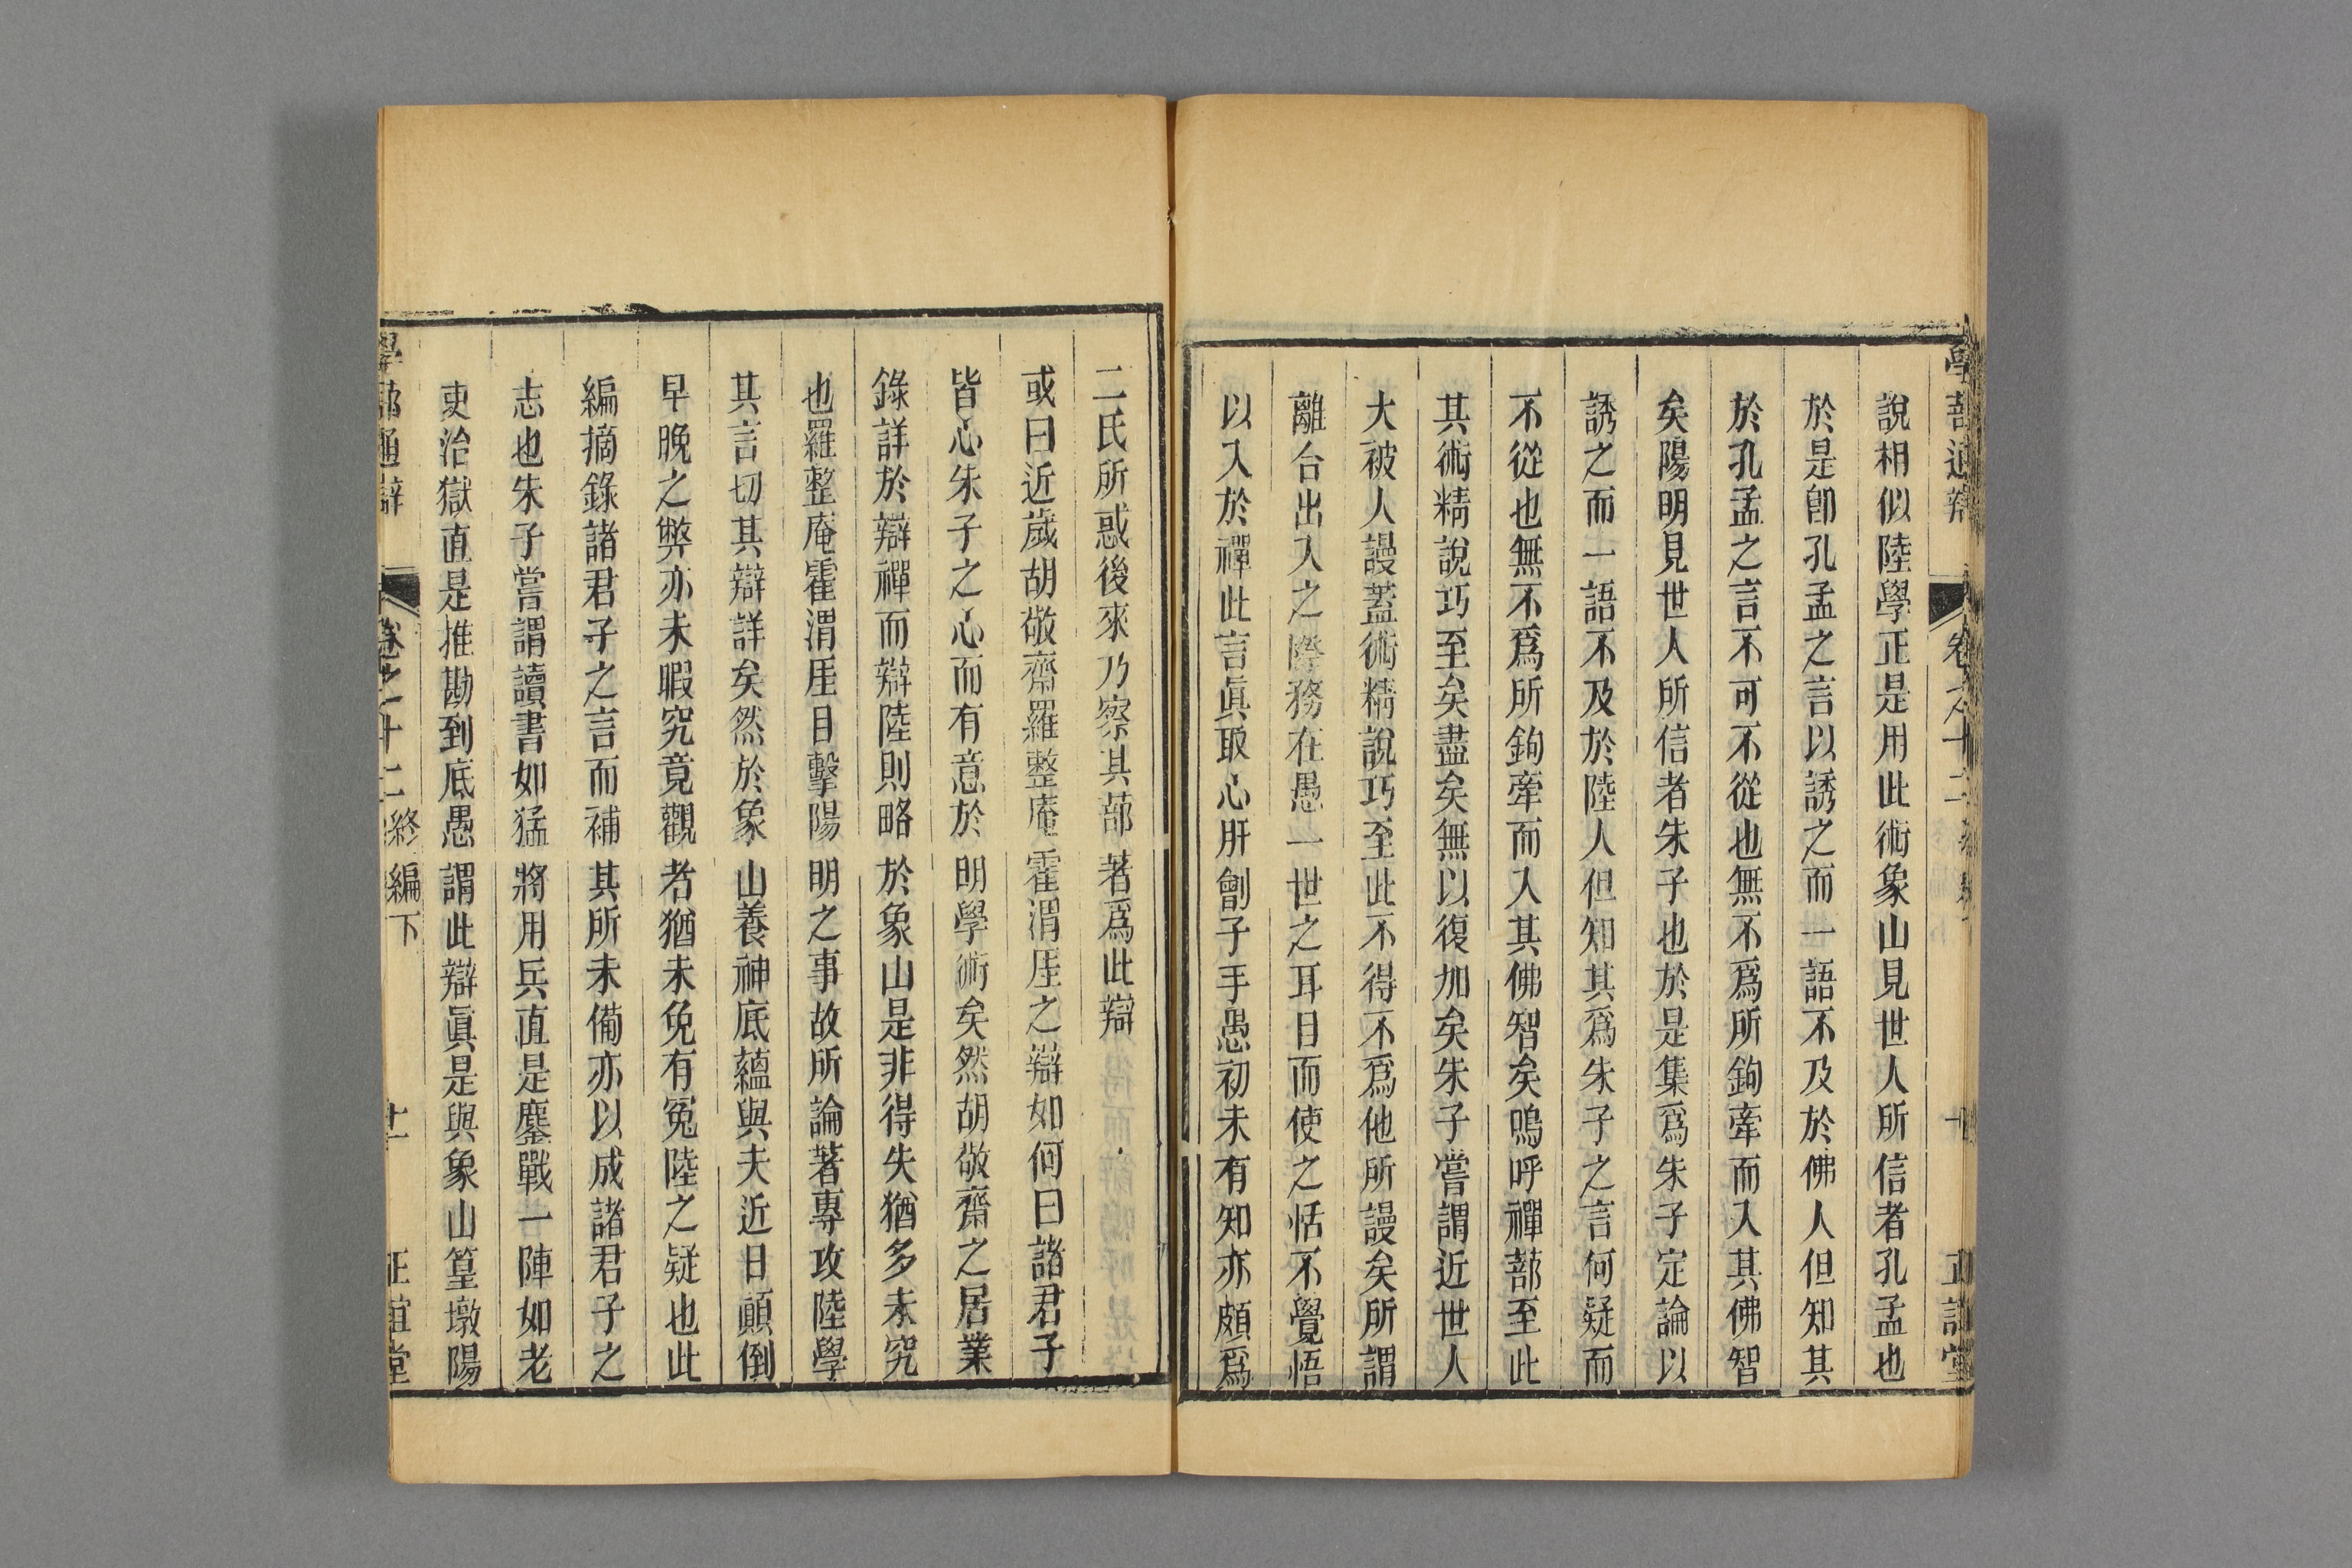 說相似陸學正是用此術象山見世人所信者孔孟也
於是卽孔孟之言以誘之而一語不及於佛人但知其
於孔孟之言不可不從也無不爲所鉤牽而入其佛智
矣陽明見世人所信者朱子也於是集爲朱子定論以
誘之而一語不及於陸人但知其爲朱子之言何疑而
不從也無不爲所鉤牽而入其佛智矣嗚呼禪蔀至此
其術精說巧至矣盡矣無以復加矣朱子嘗謂近世人
大被人謾蓋術精說巧至此不得不爲他所謾矣所謂
離合出入之際務在愚一世之耳目而使之恬不覺悟
以入於禪此言眞取心肝劊子手愚初未有知亦頗爲
二氏所惑後來乃察其蔀著爲此辯
或曰近歲胡敬齋羅整庵霍渭厓之辯如何曰諸君子
皆心朱子之心而有意於明學術矣然胡敬齋之居業
錄詳於辯禪而辯陸則略於象山是非得失猶多未究
也羅整庵霍渭厓目擊陽明之事故所論著專攻陸學
其言切其辯詳矣然於象山養神底蘊與夫近日顚倒
早晚之弊亦未暇究竟觀者猶未免有冤陸之疑也此
編摘錄諸君子之言而補其所未備亦以成諸君子之
志也朱子嘗謂讀書如猛將用兵直是鏖戰一陣如老
吏治獄直是推勘到底愚謂此辯眞是與象山篁墩陽
學蔀通辯 卷之十二終編下 十一 正誼堂